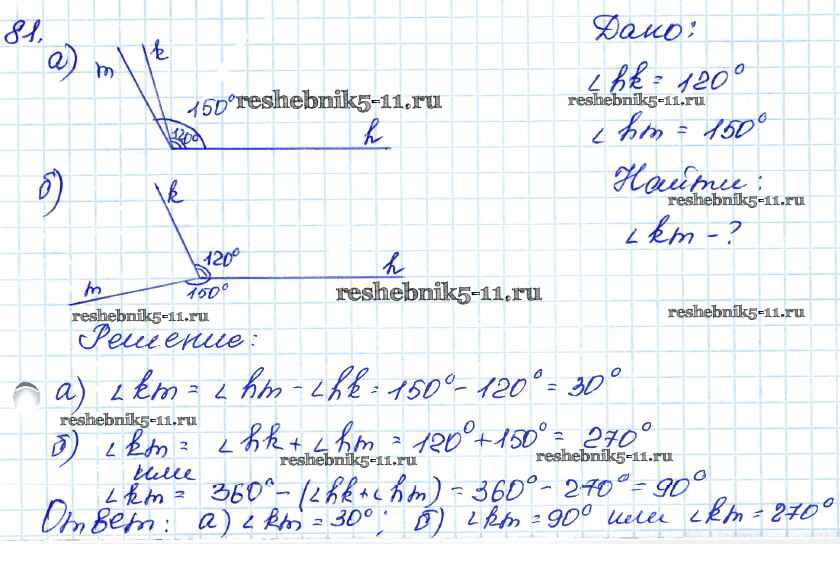 81.
а)
m
k
150°
120°
h
reshebnik5-11.ru
Дано:
∠hk = 120°
reshebnik5-11.ru
∠hm = 150°
Найти:
reshebnik5-11.ru
∠km - ?
б)
k
120°
h
m
150°
reshebnik5-11.ru
reshebnik5-11.ru
reshebnik5-11.ru
Решение:
а) ∠km = ∠hm - ∠hk = 150° - 120° = 30°
reshebnik5-11.ru
б) ∠km = ∠hk + ∠hm = 120° + 150° = 270°
reshebnik5-11.ru
reshebnik5-11.ru
или
∠km = 360° - (∠hk + ∠hm) = 360° - 270° = 90°
Ответ: а) ∠km = 30°; б) ∠km = 90° или ∠km = 270°